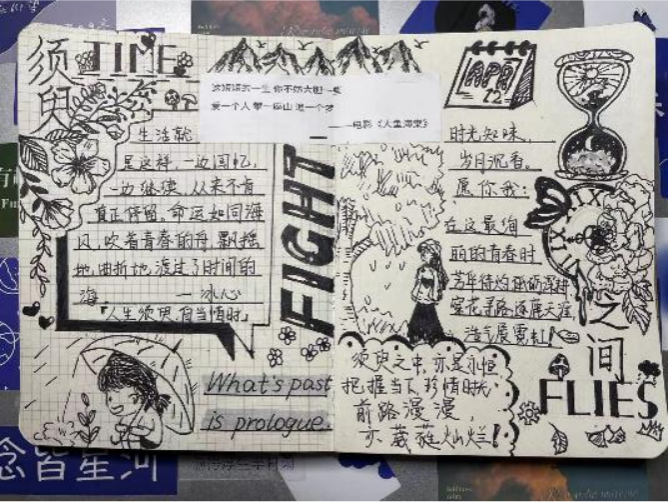 须臾
TIME
这短短的一生 你不妨大胆一些
爱一个人 攀一座山 追一个梦
——电影《大鱼海棠》
生活就
是这样，一边回忆，
一边继续，从来不肯
真正停留，命运如同海
风，吹着青春的舟，飘摇
地，曲折地，渡过了时间的
海。——冰心
人生须臾，自当惜时。
FIGHT
What's past
is prologue.
APR
时光知味，
岁月沉香。
愿你我：
在这最绚
丽的青春时
浩气展霓虹！
须臾之中，亦是永恒
把握当下，珍惜时光
前路漫漫，
亦葳蕤灿烂！
之间
FLIES
念皆星河